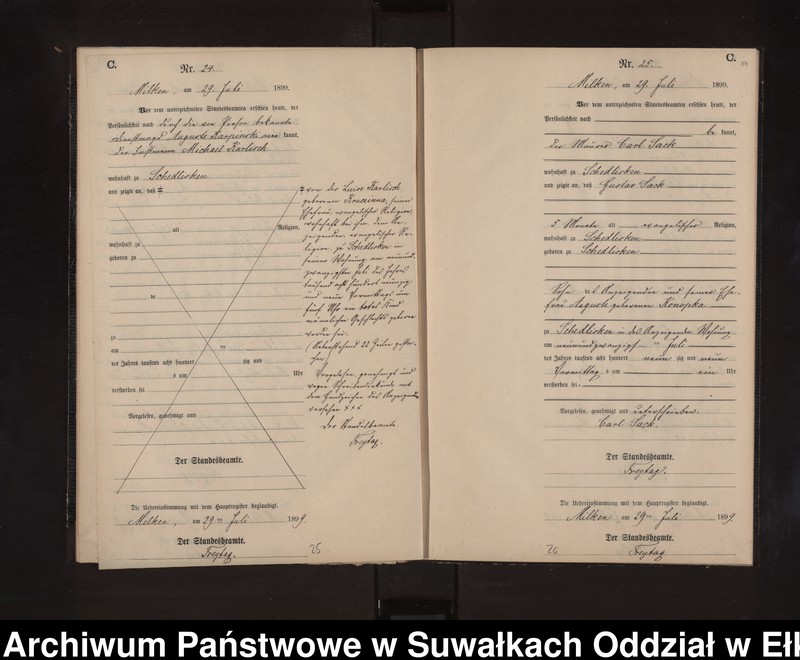 C.
Nr. 24.
Milken, am 29. Juli 1899.
Vor dem unterzeichneten Standesbeamten erschien heute, der
Persönlichkeit nach durch die von Person bekannte
Dienstmagd Auguste kannt,
der Michael Karlisch
wohnhaft zu Schedlisken
und zeigte an, daß ǂ
alt Religion,
wohnhaft zu
geboren zu
zu
am ten
des Jahres tausend acht hundert zig und
s um Uhr
verstorben sei
Vorgelesen, genehmigt und
Der Standesbeamte.
ǂ von der Luise Karlisch
geborenen seiner
Ehefrau, evangelischer Religion,
wohnhaft bei ihm, dem An-
zeigenden, evangelischer Re-
ligion, zu Schedlisken in
seiner Wohnung am neunund-
zwanzigsten Juli des Jahres
tausend acht hundert neunzig
und neun Vormittags um
fünf Uhr ein totes Kind
männlichen Geschlechts geboren
worden sei.
(Nebenstehend 22 Zeilen gestri-
chen)
Vorgelesen, genehmigt und
wegen Schreibensunkunde mit
dem Handzeichen des Anzeigenden
versehen + + +
Der Standesbeamte
Freytag.
Die Uebereinstimmung mit dem Hauptregister beglaubigt.
Milken, am 29ten Juli 1899.
Der Standesbeamte.
Freytag.
25
C.
Nr. 25.
Milken, am 29. Juli 1899.
Vor dem unterzeichneten Standesbeamten erschien heute, der
Persönlichkeit nach
be kannt,
der Maurer Carl Sack
wohnhaft zu Schedlisken
und zeigte an, daß Gustav Sack
5 Monate alt evangelischer Religion,
wohnhaft zu Schedlisken
geboren zu Schedlisken
Sohn des Anzeigenden und seiner Ehe-
frau Auguste geborenen Konopka
zu Schedlisken in des Anzeigenden Wohnung
am neunundzwanzigsten Juli
des Jahres tausend acht hundert neun zig und neun
Vormittag s um ein Uhr
verstorben sei.
Vorgelesen, genehmigt und unterschrieben.
Carl Sack.
Der Standesbeamte.
Freytag.
Die Uebereinstimmung mit dem Hauptregister beglaubigt.
Milken, am 29ten Juli 1899.
Der Standesbeamte.
Freytag
26
Archiwum Państwowe w Suwałkach Oddział w Ełk